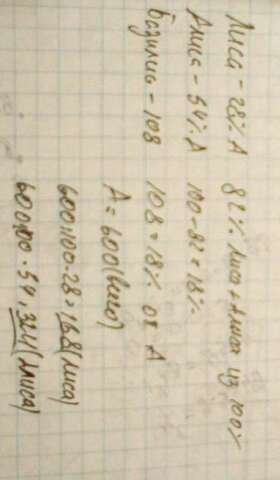 Лиса - 28% А 82% лиса + Алиса из 100%
Алиса - 54% А 100 - 82 = 18%
Базилио - 108 108 = 18% от А
А = 600 (всего)
600:100·28 = 168 (лиса)
600:100·54, 324 (Алиса)